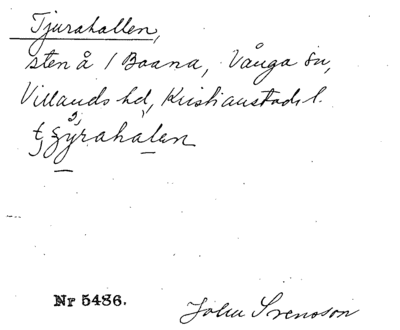 Tjurahallen,
sten å / Boana, Vånga sn,
Villands hd, Kristianstads l.
Nr 5486.
John Svensson